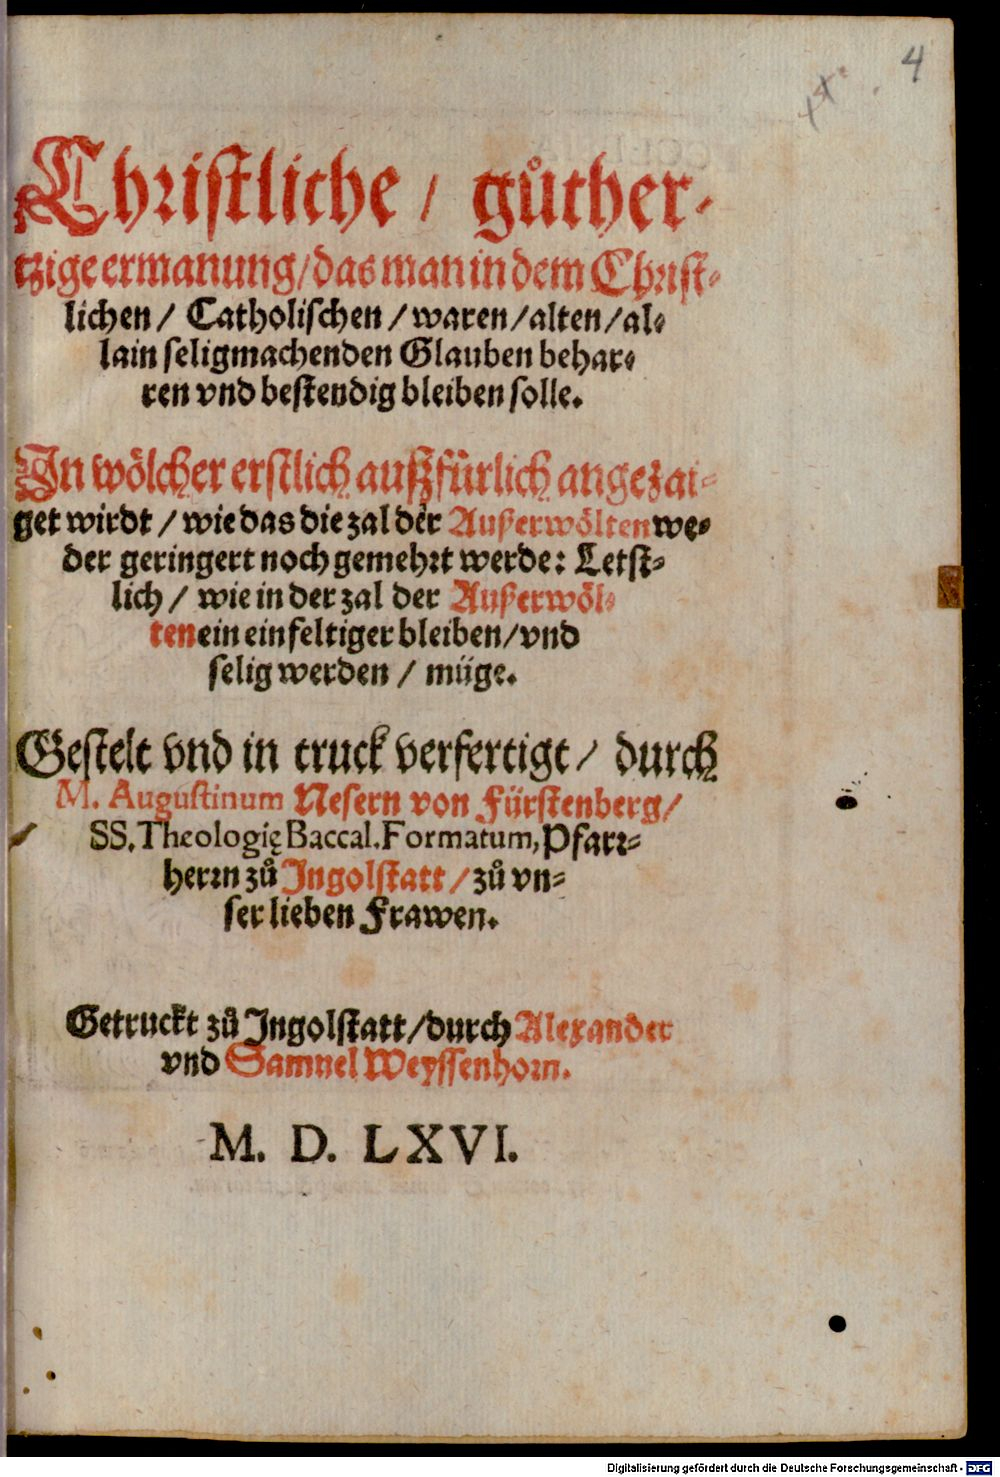 4
Christliche / gůther-
tzige ermanung / das man in dem Christ-
lichen / Catholischen / waren / alten / al-
lain seligmachenden Glauben behar-
ren vnd bestendig bleiben solle.
In wölcher erstlich außfürlich angezai-
get wirdt / wie das die zal der Außerwölten we-
der geringert noch gemehrt werde: Letst-
lich / wie in der zal der Außerwöl-
ten ein einfeltiger bleiben / vnd
selig werden / müge.
Gestelt vnd in truck verfertigt / durch
M. Augustinum Nesern von Fürstenberg /
SS. Theologię Baccal. Formatum, Pfarr-
herrn zů Ingolstatt / zů vn-
ser lieben Frawen.
Getruckt zů Ingolstatt / durch Alexander
vnd Samuel Weyssenhorn.
M. D. LXVI.
Digitalisierung gefördert durch die Deutsche Forschungsgemeinschaft - DFG